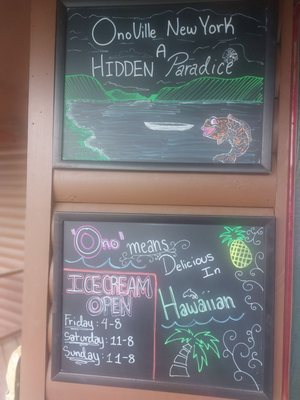 OnoVille New York
A
HIDDEN Paradice
"Ono" means
Delicious
In
Hawaiian
ICECREAM
OPEN
Friday: 4-8
Saturday: 11-8
Sunday: 11-8